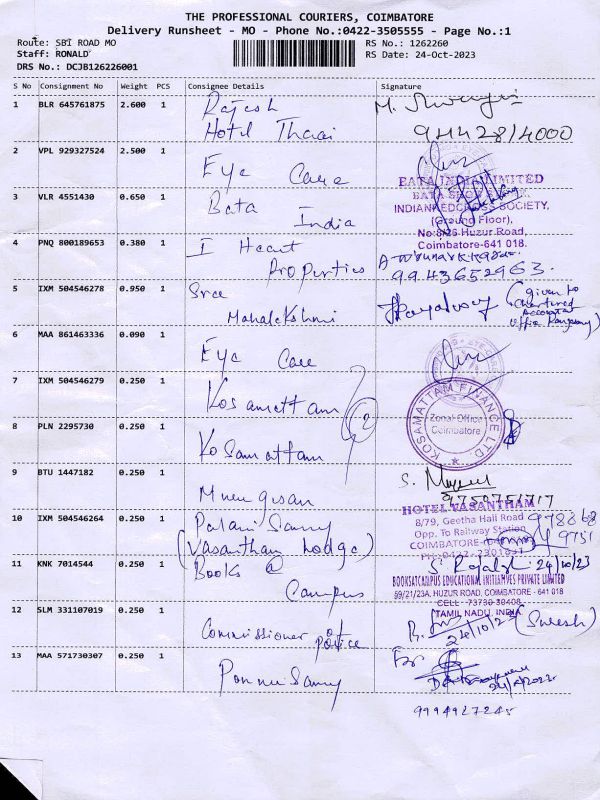 THE PROFESSIONAL COURIERS, COIMBATORE
Delivery Runsheet - MO - Phone No.:0422-3505555 - Page No.:1
Route: SBI ROAD MO
RS No.: 1262260
Staff: RONALD
RS Date: 24-Oct-2023
DRS No.: DCJB126226001
S No Consignment No Weight PCS Consignee Details Signature
1 BLR 645761875 2.600 1 Rajesh
Hotel Thaai
2 VPL 929327524 2.500 1 Eye Care
BATA INDIA LIMITED
3 VLR 4551430 0.650 1 Bata India
INDIAN RED CROSS SOCIETY,
(Ground Floor),
No:8/26 Huzur Road,
Coimbatore-641 018.
4 PNQ 800189653 0.380 1 I Heart
Properties
9943652963.
5 IXM 504546278 0.950 1 Sree
Mahalekshmi
(given to
Chartered
6 MAA 861463336 0.090 1 Eye Care
7 IXM 504546279 0.250 1 Kosamattam
(2)
KOSAMATTAM FINANCE LTD.
Zonal Office
Coimbatore
8 PLN 2295730 0.250 1 Kosamattam
9 BTU 1447182 0.250 1 Murugisan
9750751717
10 IXM 504546264 0.250 1 Palani Samy
(Vasantham Lodge)
HOTEL VASANTHAM
8/79, Geetha Hall Road
Opp. To Railway Station
11 KNK 7014544 0.250 1 Books @
Campus
24/10/23
BOOKSATCAMPUS EDUCATIONAL INITIATIVES PRIVATE LIMITED
99/21/23A, HUZUR ROAD, COIMBATORE - 641 018
CELL : 73730 30408
TAMIL NADU, INDIA
12 SLM 331107019 0.250 1 Commissioner of
police
(Suresh)
13 MAA 571730307 0.250 1 Ponnu Samy
For
9994927245